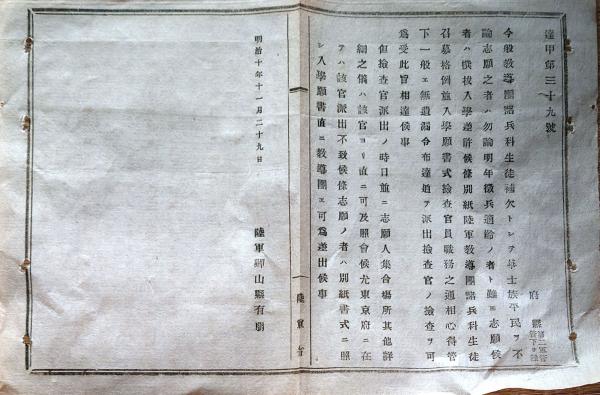 達甲第三十九號
府縣
今般教導團諸兵科生徒補欠トシテ華士族平民ヲ不
論志願之者ハ勿論明年徴兵適齢ノ者ト雖𪜈志願候
者ハ撰拔入學差許候條別紙陸軍教導團諸兵科生徒
召募格例並入學願書式檢査官員職務之通相心得管
下一般ェ無遺漏令布達追テ派出檢査官ノ檢査ヲ可
爲受此旨相達候事
但檢査官派出ノ時日並ニ志願人集合場所其他詳
細之儀ハ該官ヨリ直ニ可及照會候尤東京府ニ在
テハ該官派出不致候條志願ノ者ハ別紙書式ニ照
シ入學願書直ニ教導團ェ可爲差出候事
明治十年十一月二十九日
陸軍卿山縣有朋
陸軍省